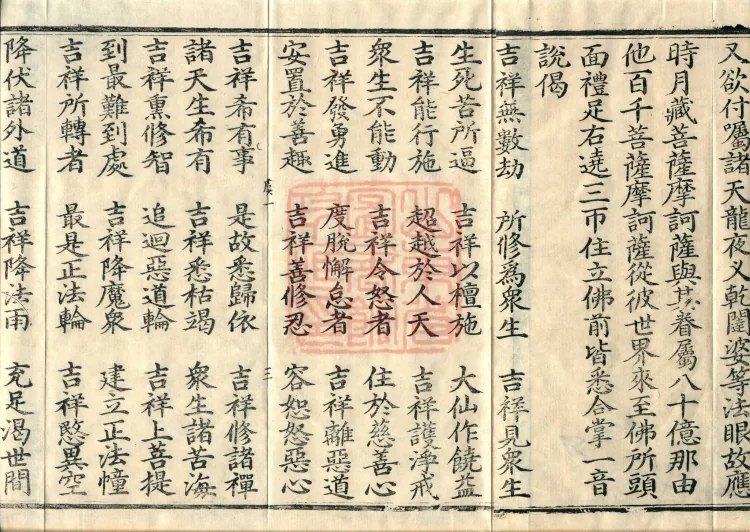 又欲付囑諸天龍夜叉乾闥婆等法眼故應
時月藏菩薩摩訶薩與其眷屬八十億那由
他百千菩薩摩訶薩從彼世界來至佛所頭
面禮足右遶三帀住立佛前皆悉合掌一音
說偈
吉祥無數劫 所修為眾生 吉祥見眾生
生死苦所逼 吉祥以檀施 大仙作饒益
吉祥能行施 超越於人天 吉祥護淨戒
眾生不能動 吉祥令怒者 住於慈善心
吉祥發勇進 度脫懈怠者 吉祥離惡道
安置於善趣 吉祥善修忍 容恕怒惡心
虞一 三
吉祥希有事 是故悉歸依 吉祥修諸禪
諸天生希有 吉祥悉枯竭 眾生諸苦海
吉祥熏修智 追迴惡道輪 吉祥上菩提
到最難到處 吉祥降魔眾 建立正法幢
吉祥所轉者 最是正法輪 吉祥愍異空
降伏諸外道 吉祥降法雨 充足渴世間